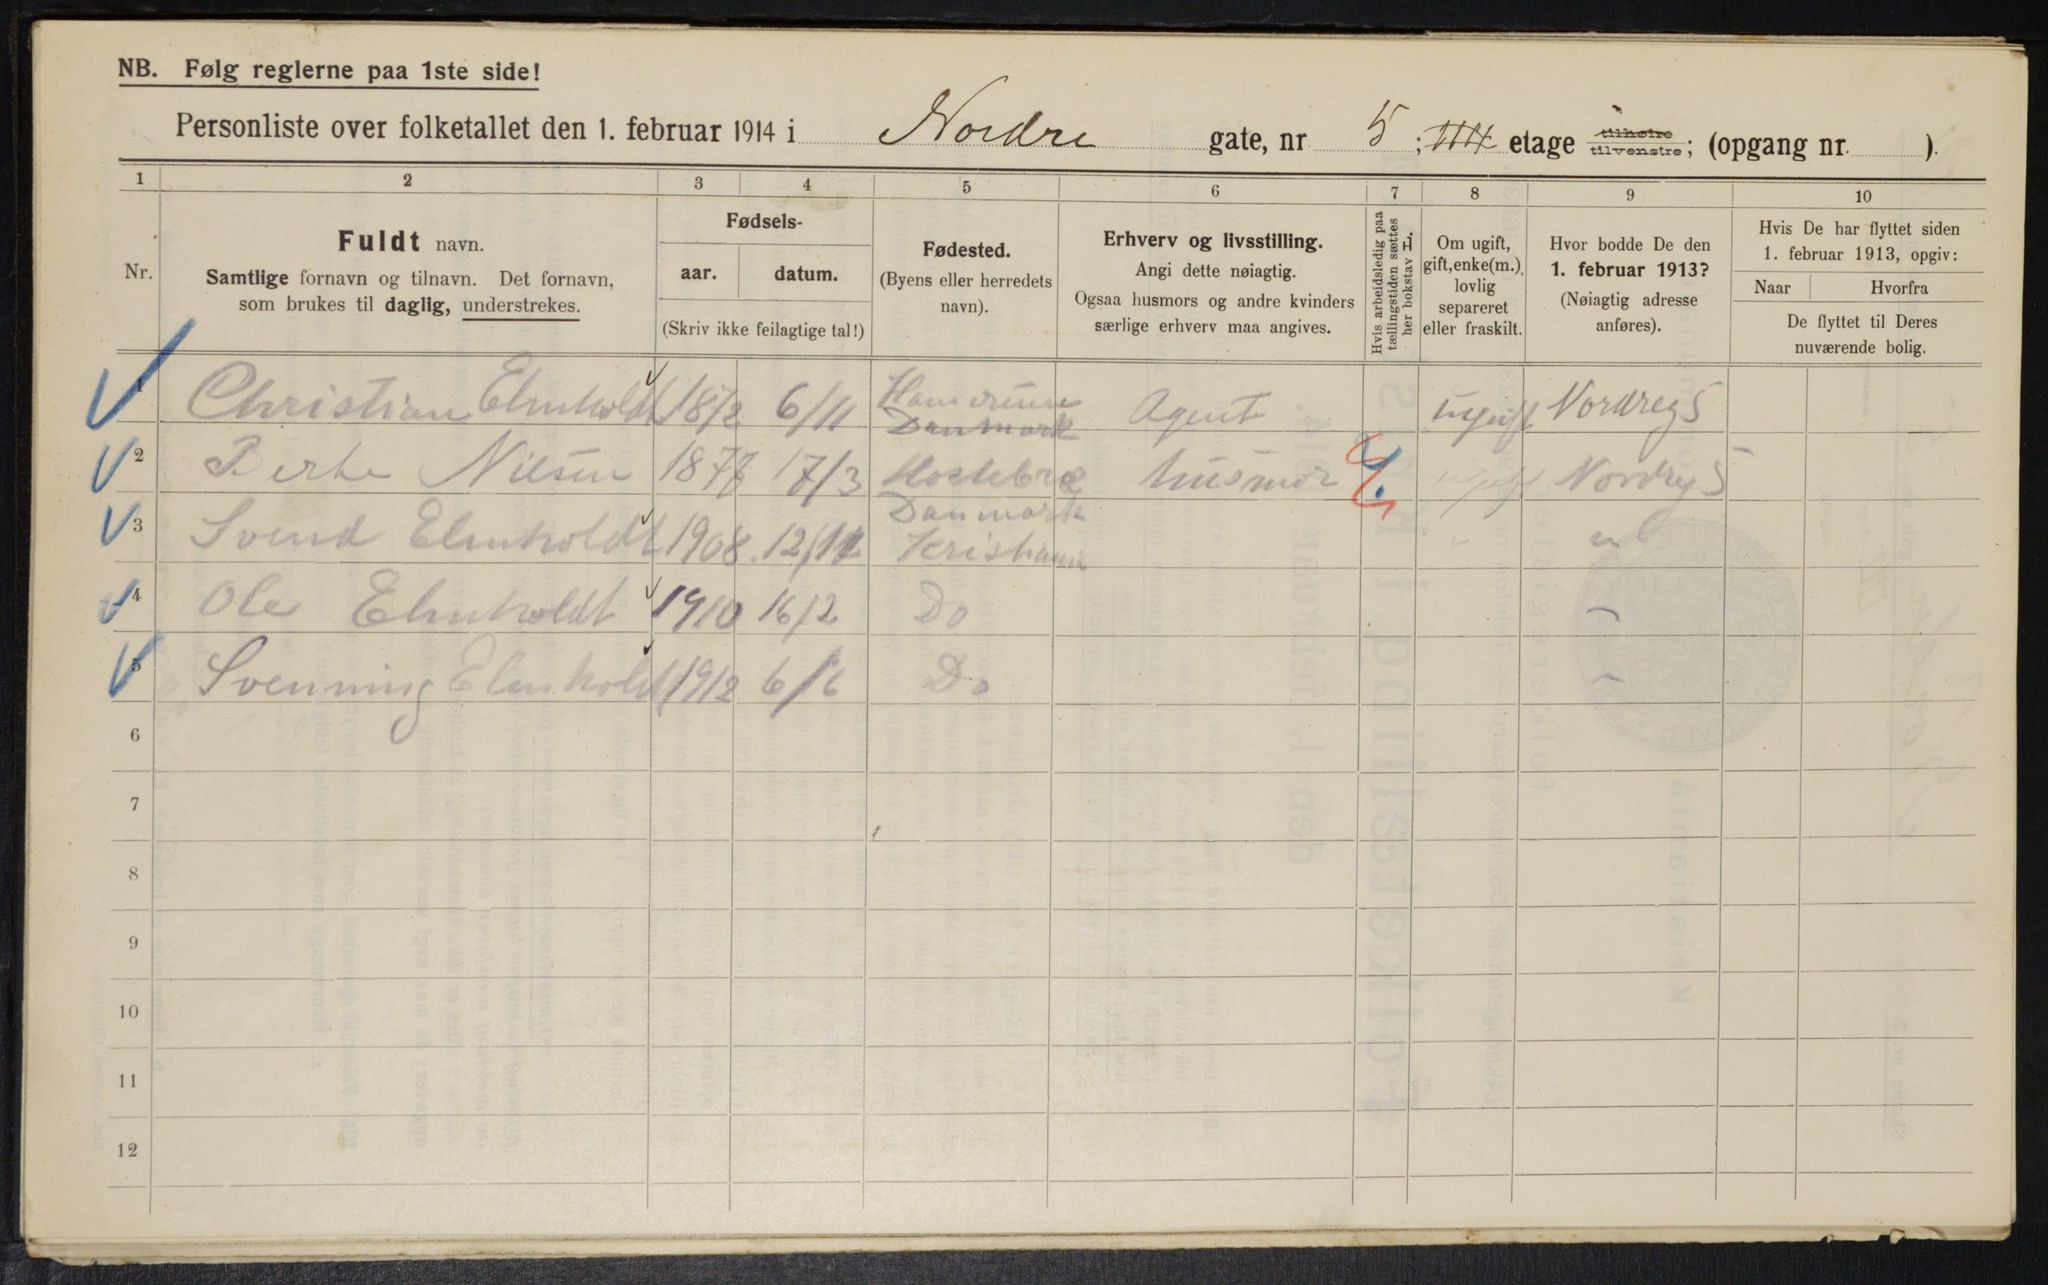 NB. Følg reglerne paa 1ste side!
Personliste over folketallet den 1. februar 1914 i Nordre gate, nr 5; etage tilhøire tilvenstre; (opgang nr. ).
1 2 3 4 5 6 7 8 9 10
Nr.
Fuldt navn.
Samtlige fornavn og tilnavn. Det fornavn,
som brukes til daglig, understrekes.
Fødsels-
aar. datum.
(Skriv ikke feilagtige tal!)
Fødested.
(Byens eller herredets
navn).
Erhverv og livsstilling.
Angi dette nøiagtig.
Ogsaa husmors og andre kvinders
særlige erhverv maa angives.
Hvis arbeidsledig paa
tællingstiden sættes
her bokstav L.
Om ugift,
gift, enke(m.),
lovlig
separeret
eller fraskilt.
Hvor bodde De den
1. februar 1913?
(Nøiagtig adresse
anføres).
Hvis De har flyttet siden
1. februar 1913, opgiv:
Naar Hvorfra
De flyttet til Deres
nuværende bolig.
1 Christian Elmholdt 1872 6/11 Danmark Agent ugift Nordreg 5
2 Berte Nilsen 1877 17/3 Danmark husmor Nordreg 5
3 Svend Elmholdt 1908 Kristiania "
4 Ole Elmholdt 1910 16/2 Do "
5 Svenning Elmholdt 1912 6/6 Do "
6
7
8
9
10
11
12